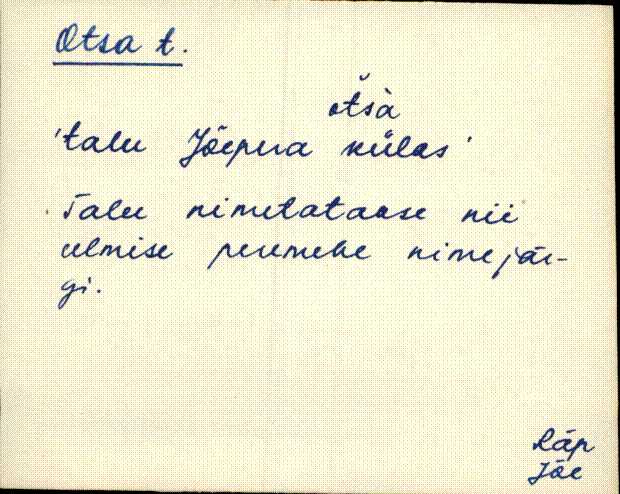 Otsa t.
otša
'talu Jõepera külas'
Talu nimetatakse nii
elmise peremehe nime jär-
gi.
Räp
Jõe